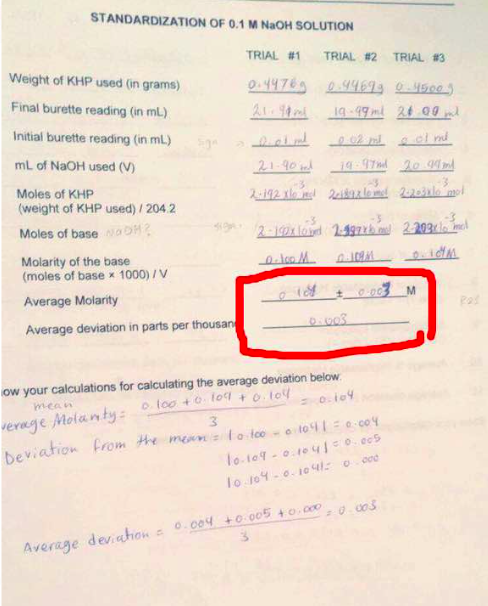 STANDARDIZATION OF 0.1 M NaOH SOLUTION
TRIAL #1 TRIAL #2 TRIAL #3
Weight of KHP used (in grams) 0.4476g 0.4469g 0.4500g
Final burette reading (in mL) 21.91ml 19.99ml 21.00 ml
Initial burette reading (in mL) 0.01 ml 0.02 ml 0.01 ml
mL of NaOH used (V) 21.90 ml 19.97ml 20.99ml
Moles of KHP 2.192 x10⁻³ mol
(weight of KHP used) / 204.2
Moles of base NaOH? 2.192x10⁻³ mol
Molarity of the base 0.100 M 0.109M 0.104M
(moles of base × 1000) / V
Average Molarity ± 0.003 M
Average deviation in parts per thousan 0.003
ow your calculations for calculating the average deviation below:
mean
verage Molarity = 0.100 + 0.109 + 0.104 / 3 = 0.104
Deviation from the mean = |0.100 - 0.104| = 0.004
|0.109 - 0.104| = 0.005
|0.104 - 0.104| = 0.000
Average deviation = 0.004 + 0.005 + 0.000 / 3 = 0.003